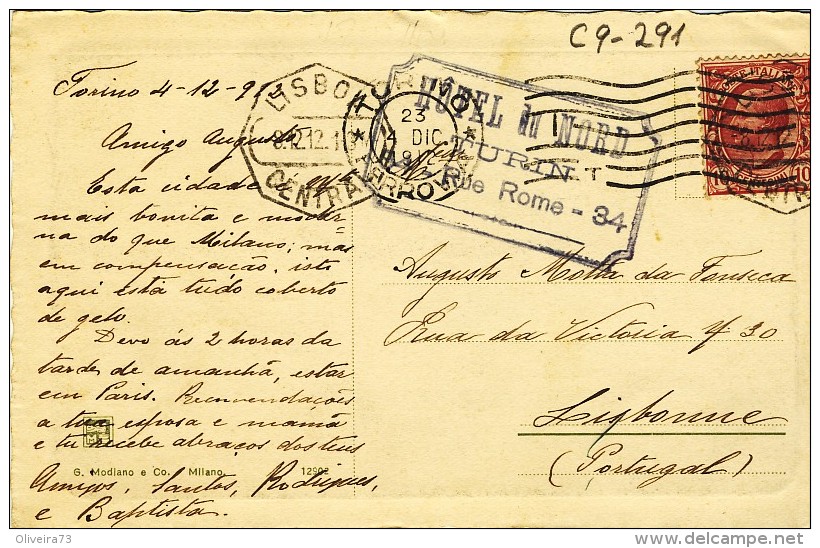 C9-291
Torino 4-12-912
Amigo Augusto
Esta cidade é
mais bonita e moder-
na do que Milano; mas
em compensação, isto
aqui está tudo coberto
de gelo.
Devo ás 2 horas da
tarde de amanhã, estar
em Paris. Recomendações
a tua esposa e mamã
e tu recebe abraços dos teus
Amigos, Santos, Rodrigues,
e Baptista.
LISBOA
8.12.12
CENTRAL
TORINO
23
4 DIC
FERROVIA
HÔTEL du NORD
TURIN
Rue Rome - 34
POSTE ITALIANE
10
Augusto Motta da Fonseca
Rua da Victoria nº 30
Lisbonne
(Portugal)
G. Modiano e Co. Milano
12902
Oliveira73
www.delcampe.net